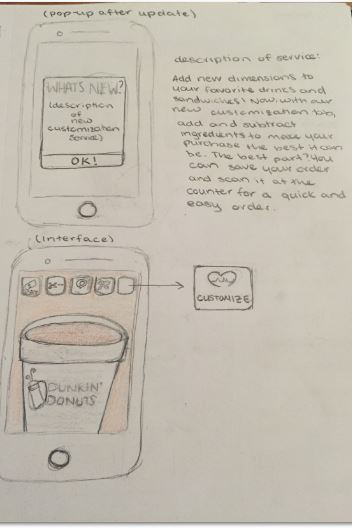 (pop-up after update)
WHATS NEW?
(description
of
new
customization
service)
OK!
description of service:
Add new dimensions to
your favorite drinks and
sandwiches! Now, with our
new customization tab,
add and subtract
ingredients to make your
purchase the best it can
be. The best part? You
can save your order
and scan it at the
counter for a quick and
easy order.
(interface)
CUSTOMIZE
DUNKIN'
DONUTS